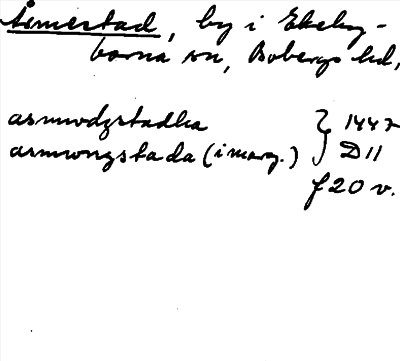 Åsmestad, by i Ekeby-
borna sn, Bobergs hd,
asmwdzstadha } 1447
asmwngstada (i marg.) } D 11
f 20 v.